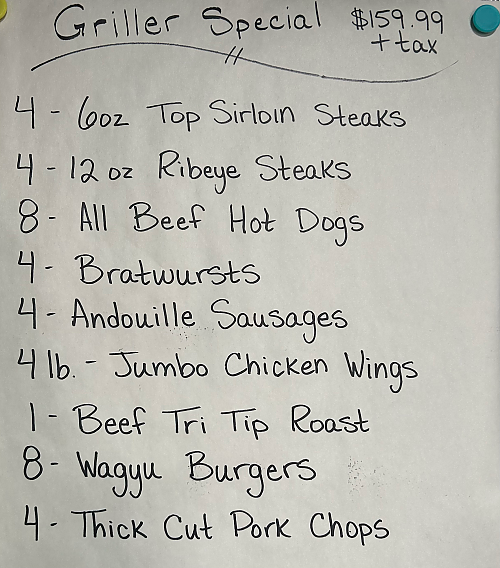 Griller Special $159.99
+ tax
4 - 6oz Top Sirloin Steaks
4 - 12 oz Ribeye Steaks
8 - All Beef Hot Dogs
4 - Bratwursts
4 - Andouille Sausages
4 lb. - Jumbo Chicken Wings
1 - Beef Tri Tip Roast
8 - Wagyu Burgers
4 - Thick Cut Pork Chops